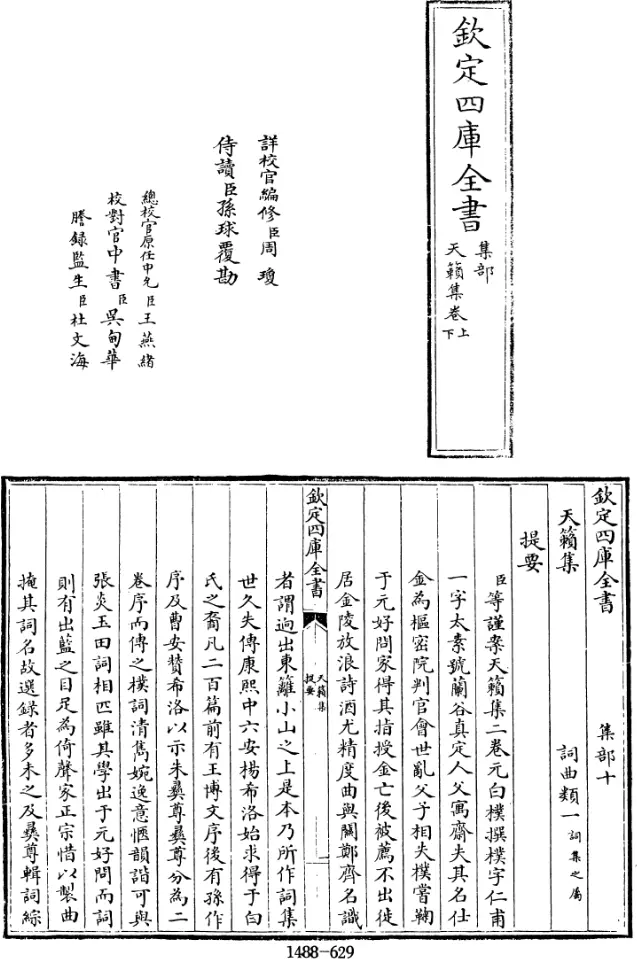 欽定四庫全書
集部
天籟集卷上下
詳校官編修臣周瓊
侍讀臣孫球覆勘
總校官原任中允臣王燕緒
校對官中書臣吳甸華
謄錄監生臣杜文海
欽定四庫全書 集部十
天籟集 詞曲類一詞集之屬
提要
臣等謹案天籟集二卷元白樸撰樸字仁甫
一字太素號蘭谷真定人父寓齋失其名仕
金為樞密院判官會世亂父子相失樸嘗鞠
于元好問家得其指授金亡後被薦不出徙
居金陵放浪詩酒尤精度曲與關鄭齊名識
欽定四庫全書
天籟集
提要
者謂逈出東籬小山之上是本乃所作詞集
世久失傳康熙中六安楊希洛始求得于白
氏之裔凡二百篇前有王博文序後有孫作
序及曹安贊希洛以示朱彝尊彝尊分為二
卷序而傳之樸詞清雋婉逸意愜韻諧可與
張炎玉田詞相匹雖其學出于元好問而詞
則有出藍之目足為倚聲家正宗惜以製曲
掩其詞名故選錄者多未之及彝尊輯詞綜
1488-629